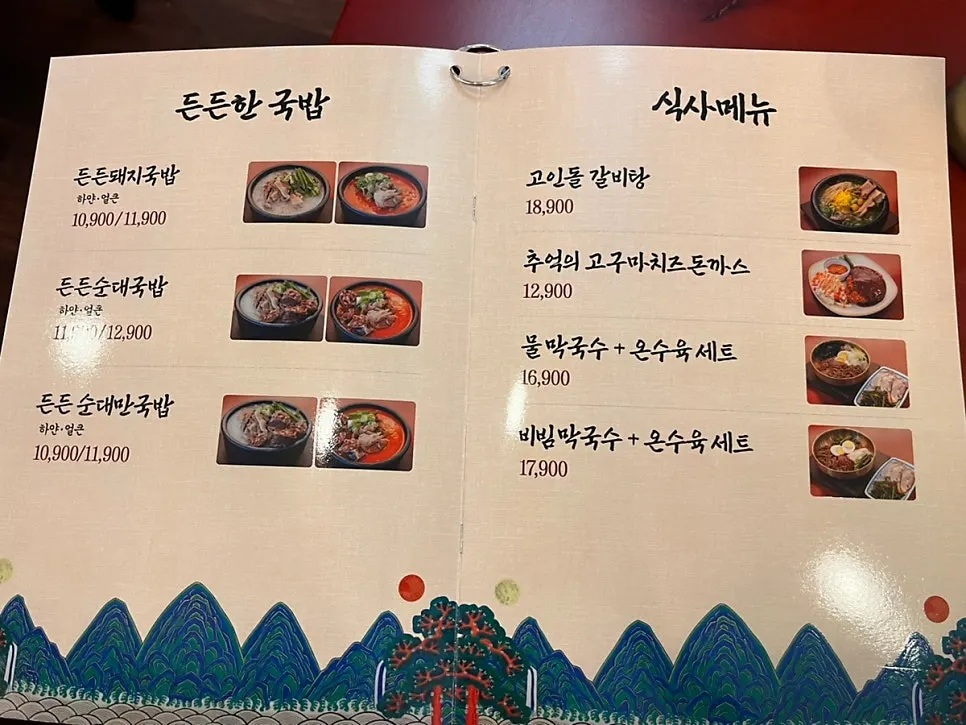 든든한 국밥
든든돼지국밥
하얀·얼큰
10,900/11,900
든든순대국밥
하얀·얼큰
/12,900
든든 순대만국밥
하얀·얼큰
10,900/11,900
식사메뉴
고인돌 갈비탕
18,900
추억의 고구마치즈돈까스
12,900
물막국수 + 온수육 세트
16,900
비빔막국수 + 온수육 세트
17,900